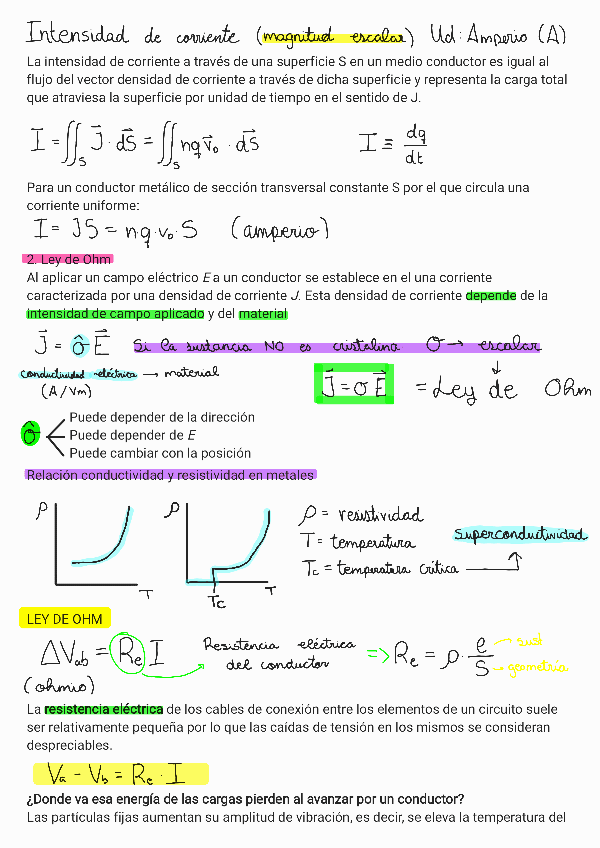 Intensidad de corriente (magnitud escalar) Ud: Amperio (A)
La intensidad de corriente a través de una superficie S en un medio conductor es igual al
flujo del vector densidad de corriente a través de dicha superficie y representa la carga total
que atraviesa la superficie por unidad de tiempo en el sentido de J.
I = ∬_S J⃗ · dS⃗ = ∬_S nqv⃗₀ · dS⃗   I ≡ dq/dt
Para un conductor metálico de sección transversal constante S por el que circula una
corriente uniforme:
I = JS = n·q·v₀·S (amperio)
2. Ley de Ohm
Al aplicar un campo eléctrico E a un conductor se establece en el una corriente
caracterizada por una densidad de corriente J. Esta densidad de corriente depende de la
intensidad de campo aplicado y del material
J⃗ = σ̂ E⃗ Si la sustancia NO es cristalina σ → escalar
conductividad eléctrica → material
(A/Vm)
J⃗ = σ E⃗ = Ley de Ohm
σ̂
Puede depender de la dirección
Puede depender de E
Puede cambiar con la posición
Relación conductividad y resistividad en metales
ρ T
ρ Tc T
ρ = resistividad
T = temperatura
Tc = temperatura crítica
Superconductividad
LEY DE OHM
ΔVab = Re I Resistencia eléctrica del conductor => Re = ρ · e/S
geometría
(ohmio)
La resistencia eléctrica de los cables de conexión entre los elementos de un circuito suele
ser relativamente pequeña por lo que las caídas de tensión en los mismos se consideran
despreciables.
Va - Vb = Re · I
¿Donde va esa energía de las cargas pierden al avanzar por un conductor?
Las partículas fijas aumentan su amplitud de vibración, es decir, se eleva la temperatura del